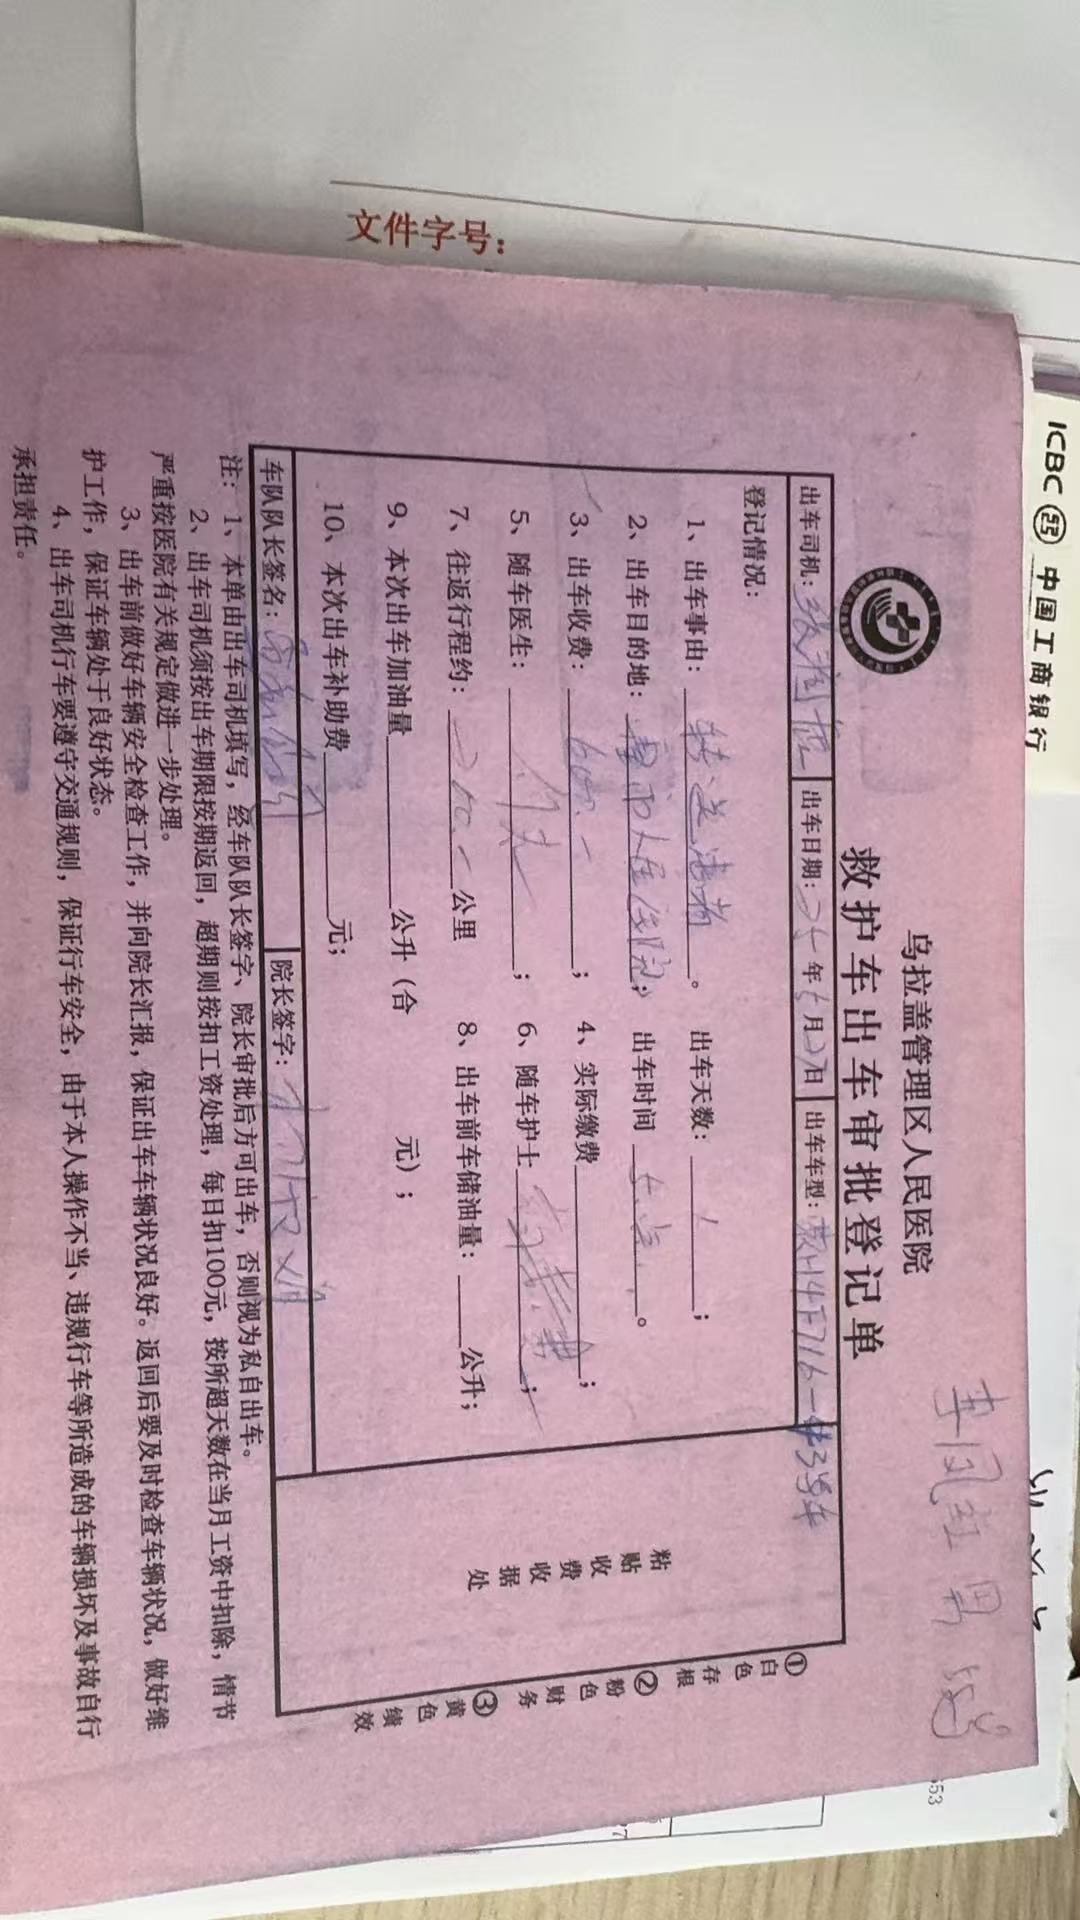 文件字号：
ICBC 中国工商银行
乌拉盖管理区人民医院
救护车出车审批登记单
出车司机： 出车日期：25年5月27日 出车车型：蒙H4F716-#3号车
登记情况：
1、出车事由：转送患者。 出车天数：1；
2、出车目的地： 出车时间 。
3、出车收费：600.-； 4、实际缴费 ；
5、随车医生： ； 6、随车护士 ；
7、往返行程约：200.-公里 8、出车前车储油量： 公升；
9、本次出车加油量 公升（合 元）；
10、本次出车补助费 元；
粘贴收费收据处
车队队长签名： 院长签字：
①白色存根 ②粉色财务 ③黄色绩效
注：1、本单由出车司机填写，经车队队长签字、院长审批后方可出车，否则视为私自出车。
2、出车司机须按出车期限按期返回，超期则按扣工资处理，每日扣100元，按所超天数在当月工资中扣除，情节
严重按医院有关规定做进一步处理。
3、出车前做好车辆安全检查工作，并向院长汇报，保证出车车辆状况良好。返回后要及时检查车辆状况，做好维
护工作，保证车辆处于良好状态。
4、出车司机行车要遵守交通规则，保证行车安全，由于本人操作不当、违规行车等所造成的车辆损坏及事故自行
承担责任。
553